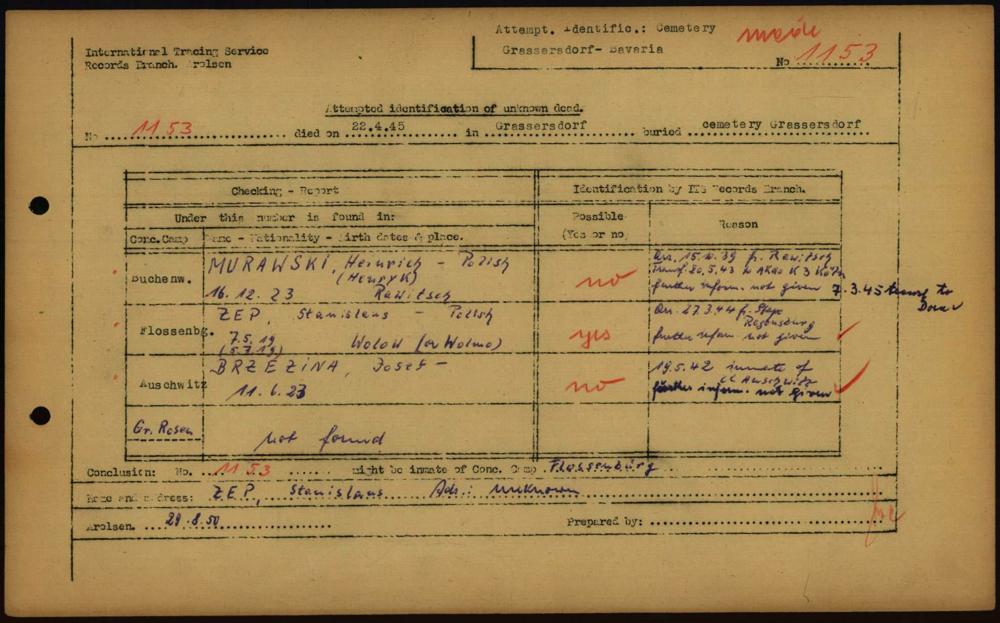 Attempt. Identific.: Cemetery
Grassersdorf- Bavaria
No 1153
International Tracing Service
Records Branch. Arolsen
Attempted identification of unknown dead.
No 1153 died on 22.4.45 in Grassersdorf buried cemetery Grassersdorf
Checking - Report
Identification by ITS Records Branch.
Under this number is found in:
Possible
(Yes or no
Reason
Conc.Camp Name - Nationality - Birth dates & place.
Buchenw.
MURAWSKI, Heinrich - Polish
(Henryk)
16.12.23 Rawitsch
no
Arr. 15.10.39 fr. Rawitsch
Transf. 20.5.43
further inform. not given 7.3.45 transf to
Dora
Flossenbg.
ZEP, Stanislaus - Polish
7.5.19
(5.7.19)
Wolow (or Wolma)
yes
Arr. 27.3.44 fr. Stapo
Regensburg
further inform. not given
Auschwitz
BRZEZINA, Josef -
11.6.23
no
19.5.42 inmate of
CC Auschwitz
further inform. not given
Gr. Rosen
not found
Conclusion: No. 1153 might be inmate of Conc. Camp Flossenbürg
Name and address: ZEP, Stanislaus Adr.: unknown
Arolsen. 29.8.50 Prepared by: